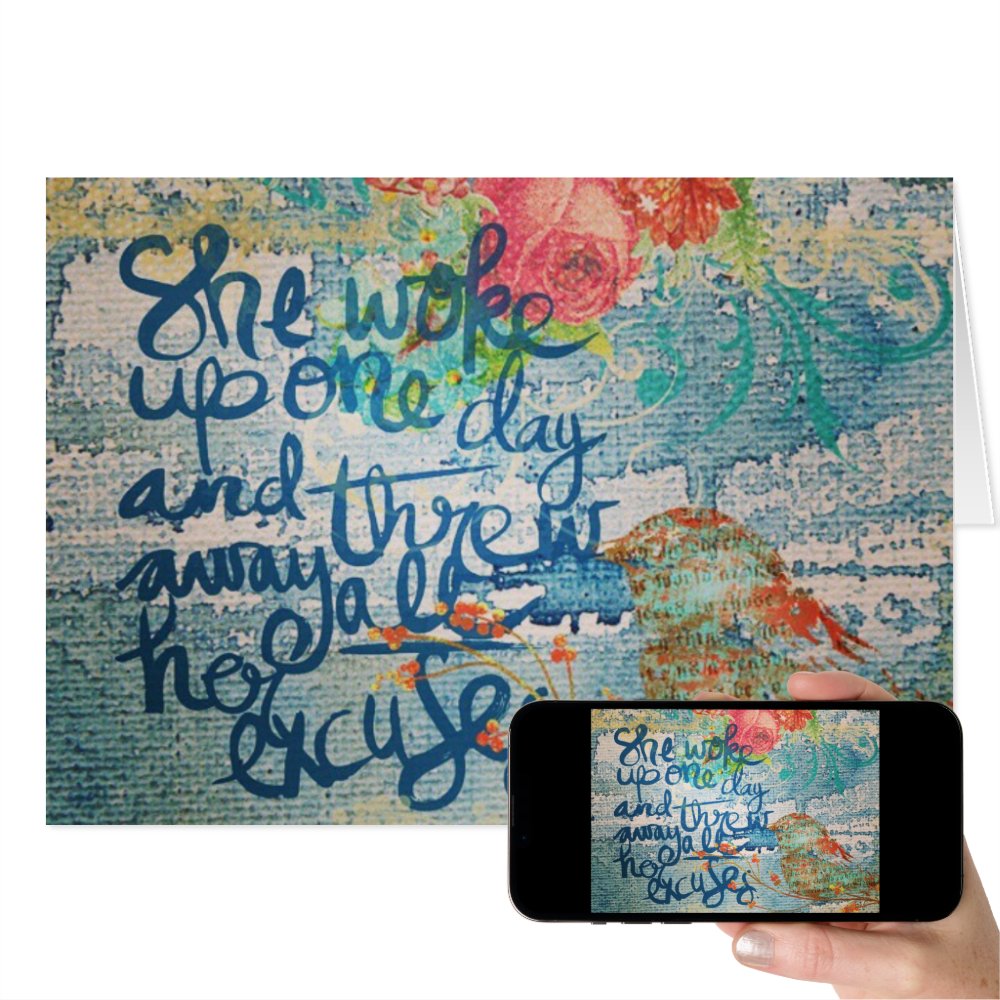 She woke
up one day
and threw
away all
her
excuses
She woke
up one day
and threw
away all
her
excuses